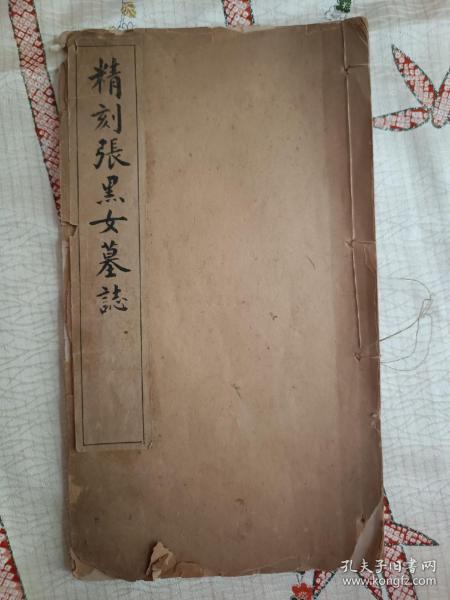 精刻張黑女墓誌
孔夫子旧书网
www.kongfz.com